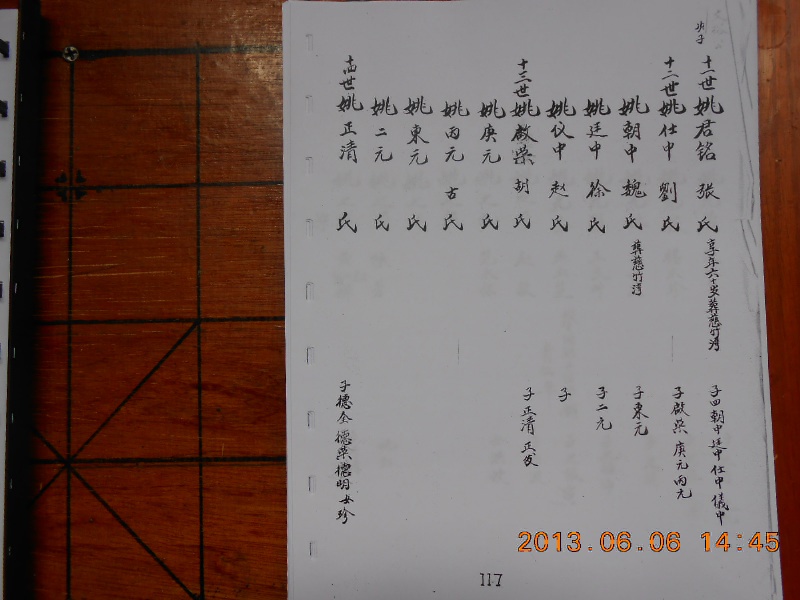 十一世姚君铭 張氏 享年六十岁葬慈竹湾 子四朝中廷中仕中儀中
十二世姚仕中 劉氏 子啟荣庚元丙元
姚朝中 魏氏 葬慈竹湾 子東元
姚廷中 徐氏 子二元
姚仪中 赵氏 子
十三世姚啟荣 胡氏 子正清正友
姚庚元 氏
姚丙元 古氏
姚東元 氏
姚二元 氏
十四世姚正清 氏 子德全德荣德明女珍
117
2013.06.06 14:45